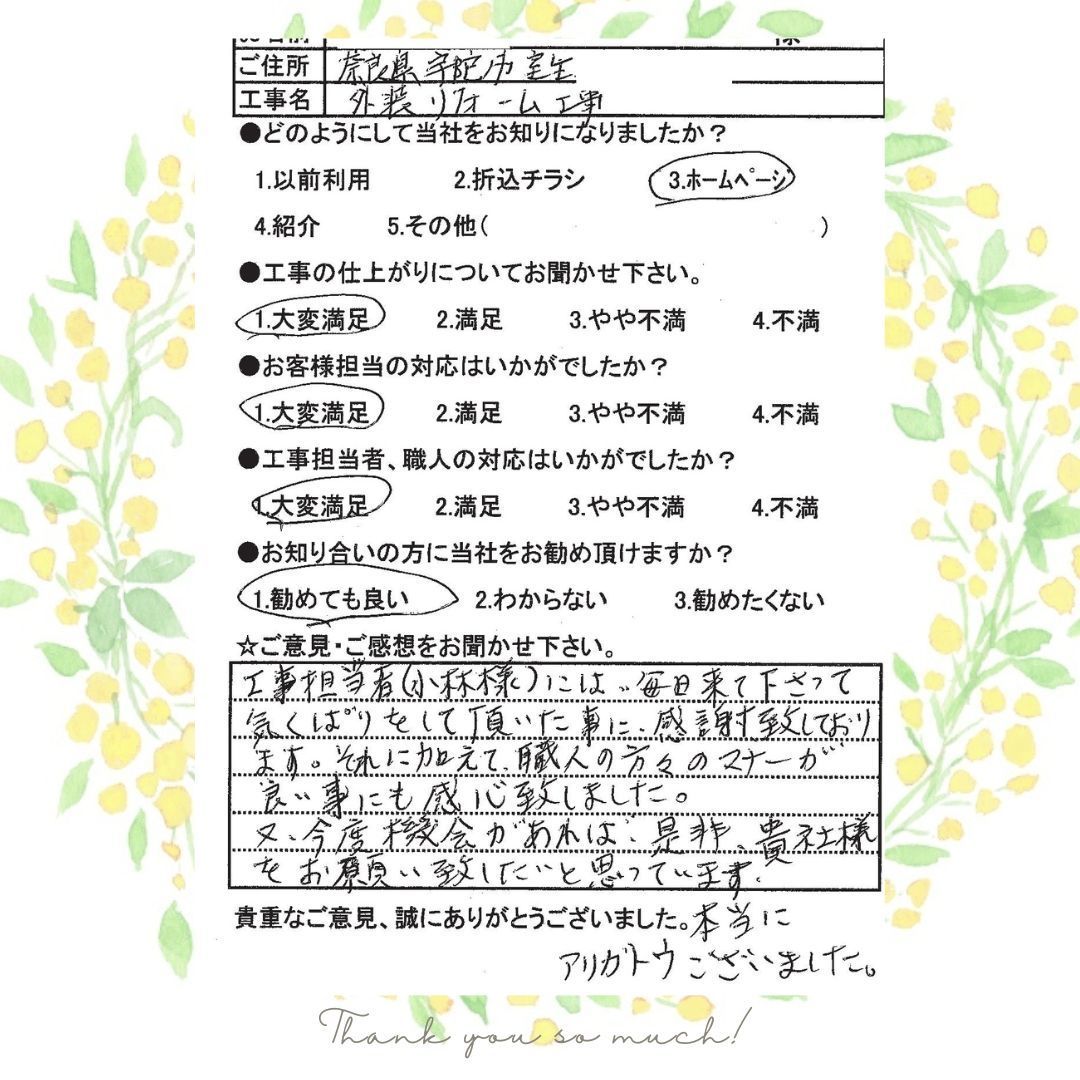 ご住所 奈良県宇陀市室生
工事名 外装リフォーム工事
●どのようにして当社をお知りになりましたか？
1.以前利用 2.折込チラシ 3.ホームページ
4.紹介 5.その他( )
●工事の仕上がりについてお聞かせ下さい。
1.大変満足 2.満足 3.やや不満 4.不満
●お客様担当の対応はいかがでしたか？
1.大変満足 2.満足 3.やや不満 4.不満
●工事担当者、職人の対応はいかがでしたか？
1.大変満足 2.満足 3.やや不満 4.不満
●お知り合いの方に当社をお勧め頂けますか？
1.勧めても良い 2.わからない 3.勧めたくない
☆ご意見・ご感想をお聞かせ下さい。
工事担当者(小林様)には、毎日来て下さって
気くばりをして頂いた事に、感謝致しており
ます。それに加えて、職人の方々のマナーが
良い事にも感心致しました。
又、今度機会があれば、是非、貴社様
をお願い致したいと思っています。
貴重なご意見、誠にありがとうございました。本当に
アリガトウございました。
Thank you so much!